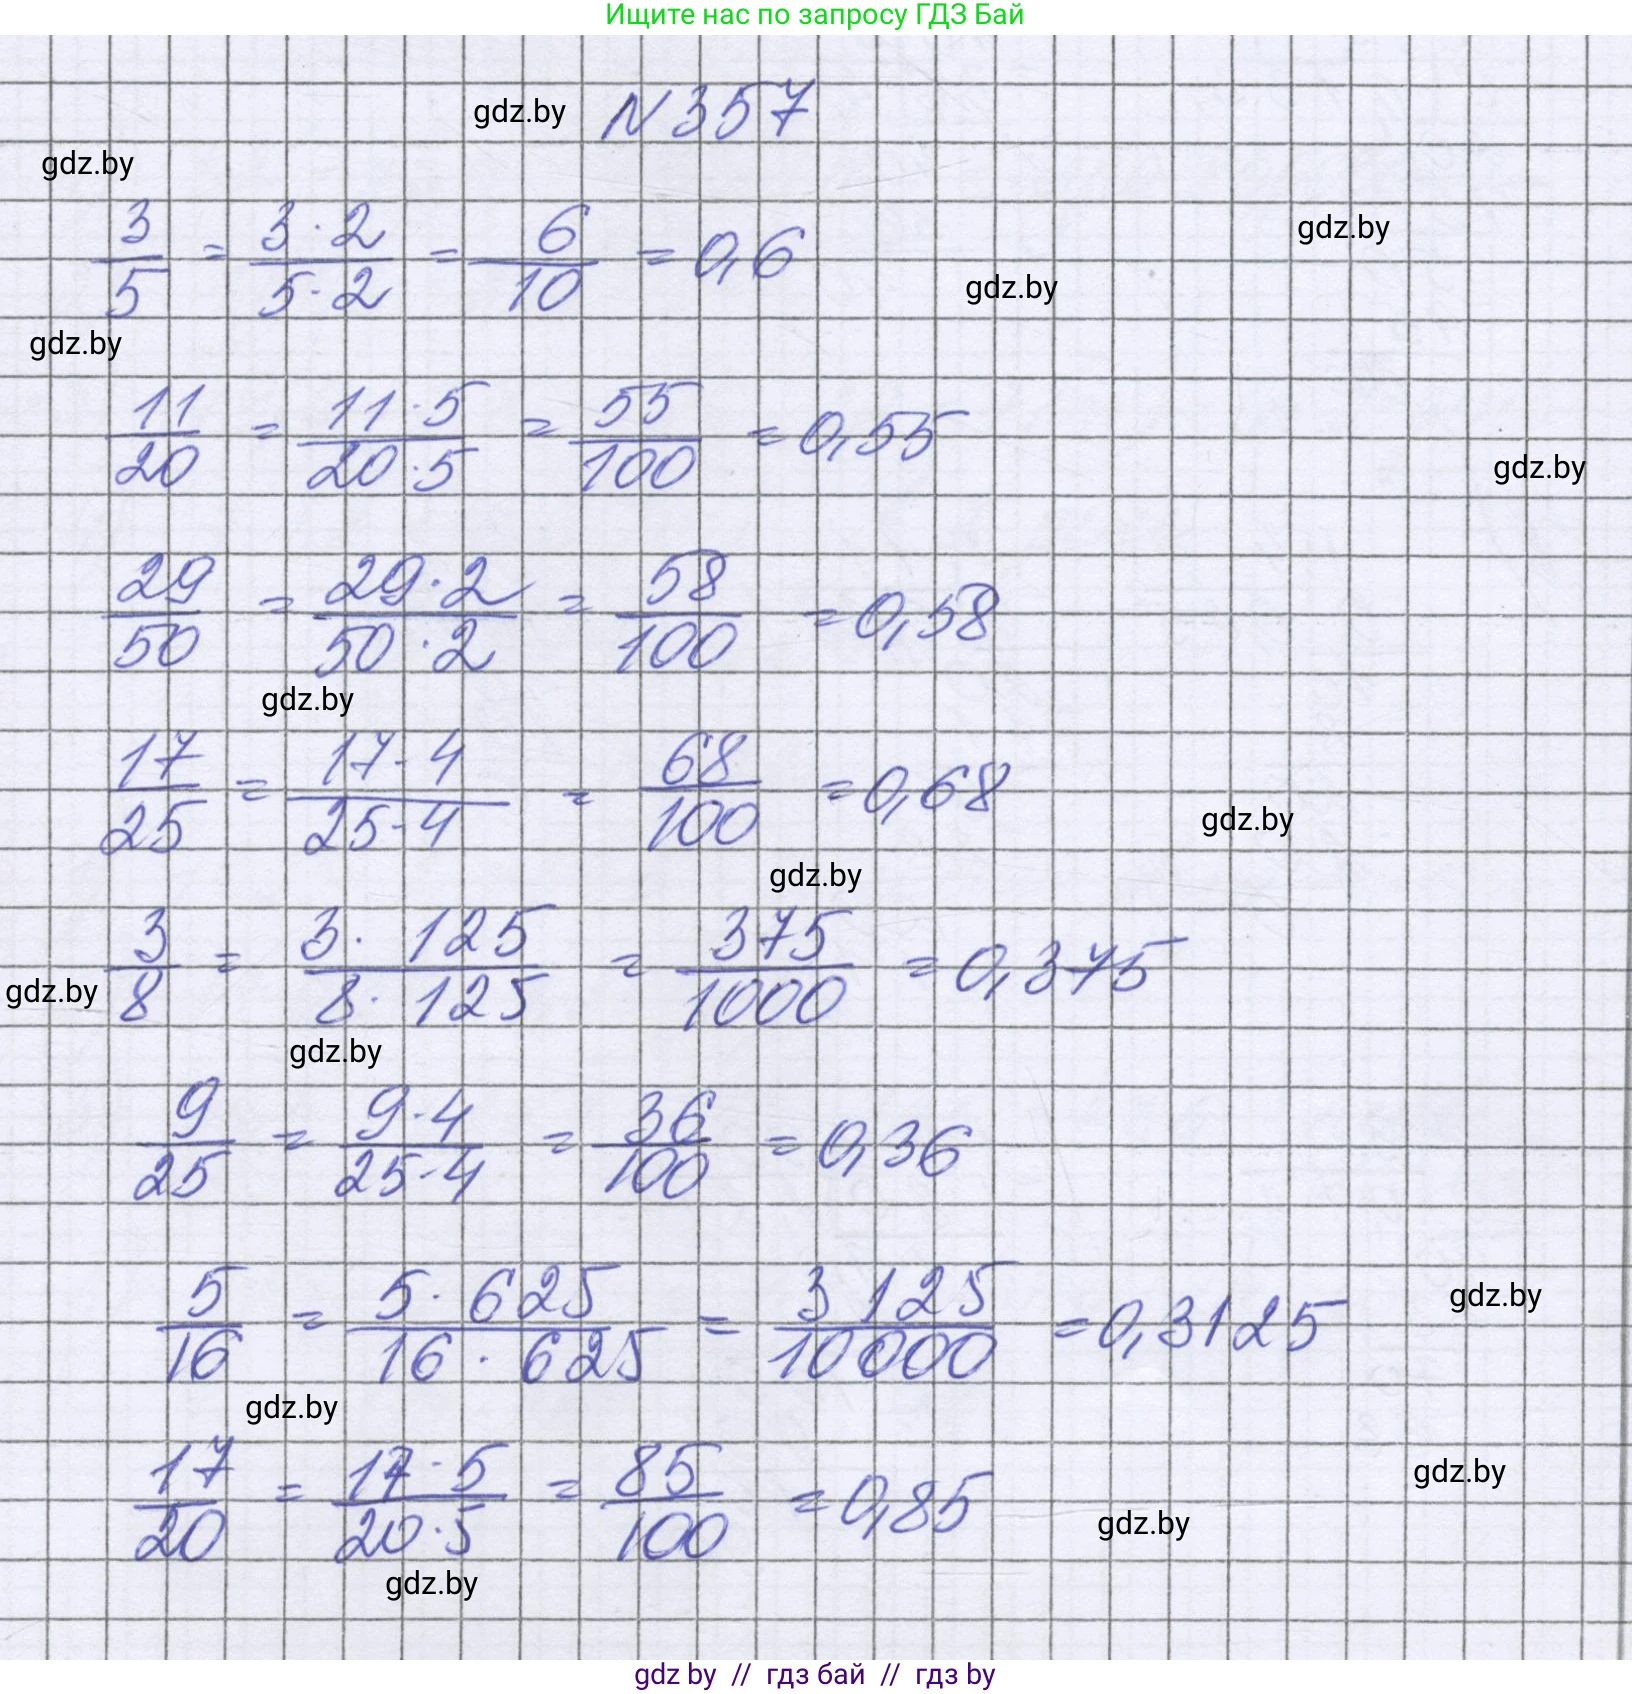 Ищите нас по запросу ГДЗ Бай
gdz.by N 357
gdz.by
3/5 = 3·2/5·2 = 6/10 = 0,6
gdz.by
gdz.by
gdz.by
11/20 = 11·5/20·5 = 55/100 = 0,55
gdz.by
29/50 = 29·2/50·2 = 58/100 = 0,58
gdz.by
17/25 = 17·4/25·4 = 68/100 = 0,68
gdz.by
gdz.by
3/8 = 3·125/8·125 = 375/1000 = 0,375
gdz.by
gdz.by
9/25 = 9·4/25·4 = 36/100 = 0,36
gdz.by
5/16 = 5·625/16·625 = 3125/10000 = 0,3125
gdz.by
17/20 = 17·5/20·5 = 85/100 = 0,85
gdz.by
gdz.by
gdz.by
gdz by // гдз бай // гдз by